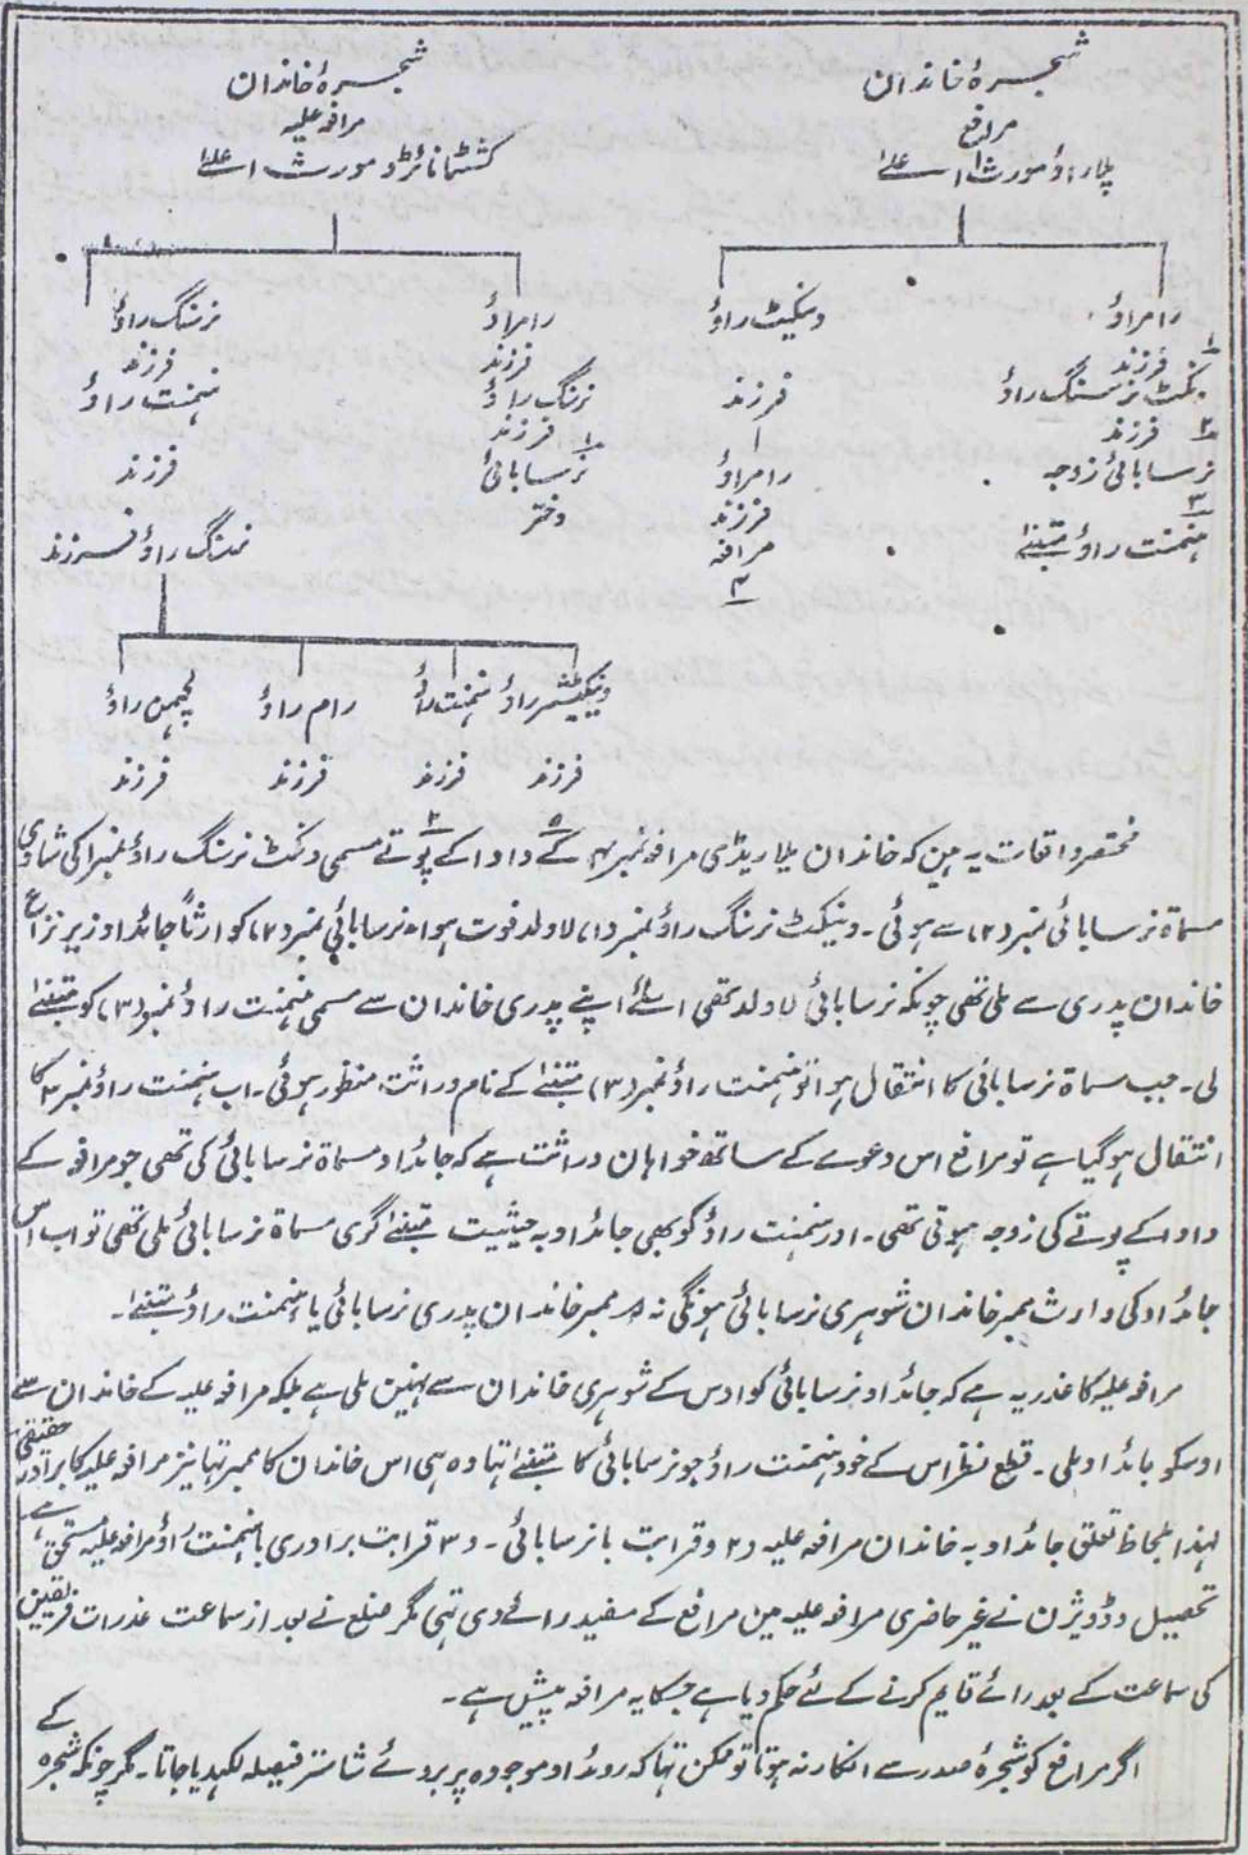 شجرۂ خاندان
مرافع
پلماراؤ مورث اعلےٰ
رامراؤ
وینکیٹ راؤ
۱
فرزند
ونکٹ نرسنگ راؤ
فرزند
۲ فرزند
نرسابائی زوجہ
رامراؤ
۳
فرزند
ہنمنت راؤ متبنےٰ
مرافعہ
۴
شجرۂ خاندان
مرافعہ علیہ
کشٹمانائڑو مورث اعلےٰ
رامراؤ
نرسنگ راؤ
فرزند
فرزند
نرسنگ راؤ
ہنمنت راؤ
فرزند
۱
نرسابائی
فرزند
دختر
نرسنگ راؤ فرزند
وینکٹیشر راؤ
ہنمنت راؤ
رام راؤ
لچہمن راؤ
فرزند
فرزند
فرزند
فرزند
۵ ۲
مختصر واقعات یہ ہین کہ خاندان پلماریڈی مرافعہ نمبر ۴ کے دادا کے پوتے مسمی ونکٹ نرسنگ راؤ نمبر ا کی شادی
مسماۃ نرسابائی نمبر (۲) سے ہوئی۔ وینکیٹ نرسنگ راؤ نمبر (۱) لاولد فوت ہوا۔ نرسابائی نمبر (۲) کو ارثاً جائداد زیر نزاع
خاندان پدری سے ملی تھی چونکہ نرسابائی لاولد تھی اسلئے اپنے پدری خاندان سے مسمی ہنمنت راؤ نمبر (۳) کو متبنےٰ
لی۔ جب مسماۃ نرسابائی کا انتقال ہوا تو ہنمنت راؤ نمبر (۳) متبنےٰ کے نام وراثت منظور ہوئی۔ اب ہنمنت راؤ نمبر ۳ کا
انتقال ہوگیا ہے تو مرافع اس دعوے کے ساتھ خواہان وراثت ہے کہ جائداد مسماۃ نرسابائی کی تھی جو مرافعہ کے
دادا کے پوتے کی زوجہ ہوتی تھی۔ اور ہنمنت راؤ کو بھی جائداد بہ حیثیت متبنےٰ گری مسماۃ نرسابائی ملی تھی تو اب اس
جائداد کی وارث ممبر خاندان شوہری نرسابائی ہونگی نہ کہ ممبر خاندان پدری نرسابائی یا ہنمنت راؤ متبنےٰ۔
مرافعہ علیہ کا عذر یہ ہے کہ جائداد نرسابائی کو اوس کے شوہری خاندان سے نہین ملی ہے بلکہ مرافعہ علیہ کے خاندان سے
اوسکو جائداد ملی۔ قطع نظر اس کے خود ہنمنت راؤ جو نرسابائی کا متبنےٰ تہا وہ ہی اس خاندان کا ممبر تہا نیز مرافعہ علیہ کا برادر حقیقی
لہذا بلحاظ تعلق جائداد بہ خاندان مرافعہ علیہ و ۲ وقرابت با نرسابائی۔ و ۳ قرابت برادری با ہنمنت راؤ مرافعہ علیہ مستحق ہے
تحصیل و ڈویژن نے غیر حاضری مرافعہ علیہ مین مرافع کے مفید رائے دی تہی مگر ضلع نے بعد از سماعت عذرات فریقین
کی سماعت کے بعد رائے قایم کرنے کے لئے حکم دیا ہے جسکا یہ مرافعہ پیش ہے۔
اگر مرافع کو شجرۂ صدر سے انکار نہ ہوتا تو ممکن تہا کہ روئداد موجودہ پر بروئے شاستر فیصلہ لکہدیا جاتا۔ مگر چونکہ شجرہ کے